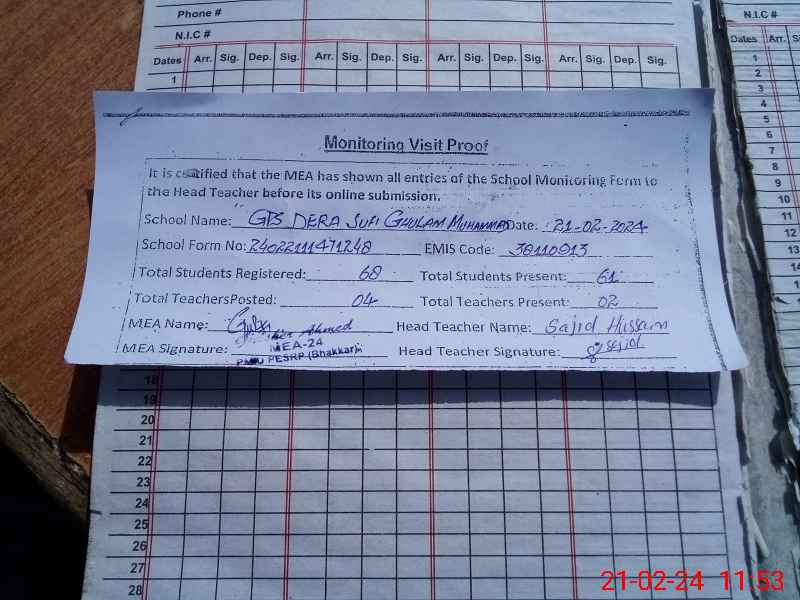 Phone #
N.I.C #
N.I.C #
Dates Arr. Sig. Dep. Sig. Arr. Sig. Dep. Sig. Arr. Sig. Dep. Sig. Arr. Sig. Dep. Sig.
1
Dates Arr.
1
2
3
4
5
6
7
8
9
10
11
12
13
14
15
Monitoring Visit Proof
It is certified that the MEA has shown all entries of the School Monitoring Form to
the Head Teacher before its online submission.
School Name: GPS DERA SUFI GHULAM MUHAMMAD Date: 21-02-2024
School Form No: 24022111471248 EMIS Code: 38110913
Total Students Registered: 68 Total Students Present: 61
Total TeachersPosted: 04 Total Teachers Present: 02
MEA Name: Ahmed Head Teacher Name: Sajid Hussain
MEA Signature: MEA-24 Head Teacher Signature: Sajid
PMIU PESRP (Bhakkar)
18
19
20
21
22
23
24
25
26
27
28
21-02-24 11:53